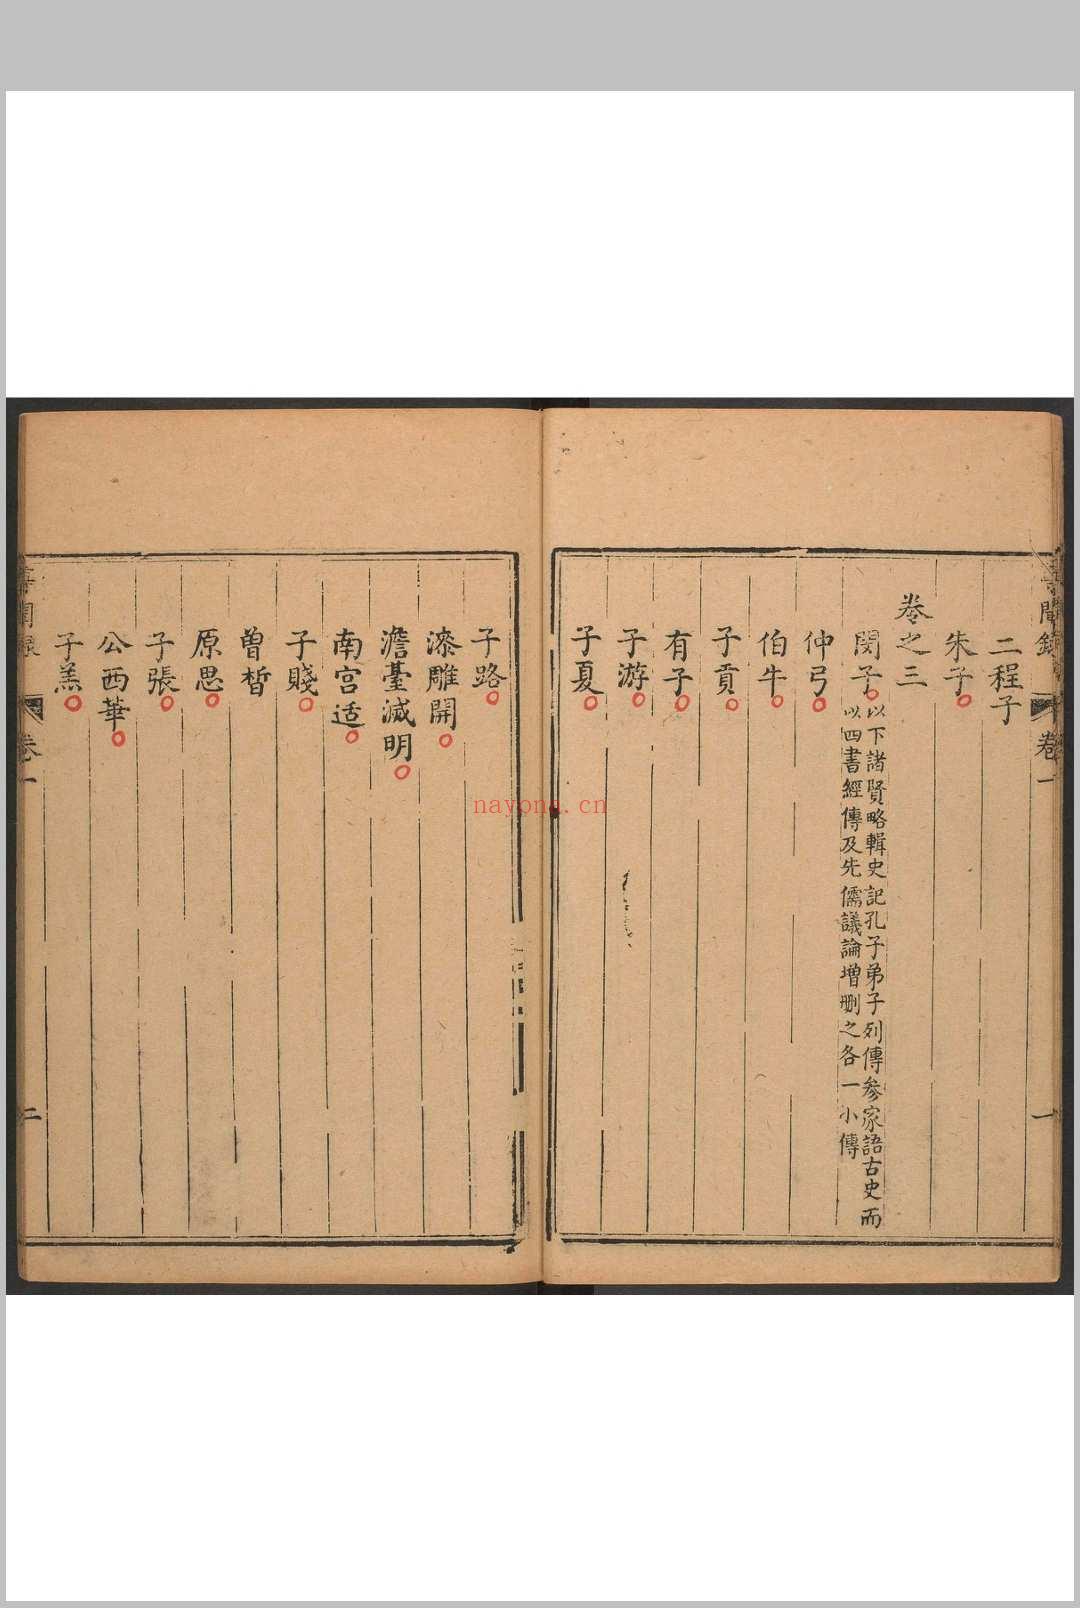 聞錄 卷一 一
二程子
朱子
卷之三
閔子 以下諸賢略輯史記孔子弟子列傳參家語古史而
以四書經傳及先儒議論增刪之各一小傳
仲弓
伯牛
子貢
有子
子游
子夏
子路
漆雕開
澹臺滅明
南宮适
子賤
曾晳
原思
子張
公西華
子羔
聞錄 卷一 二
nayona.cn